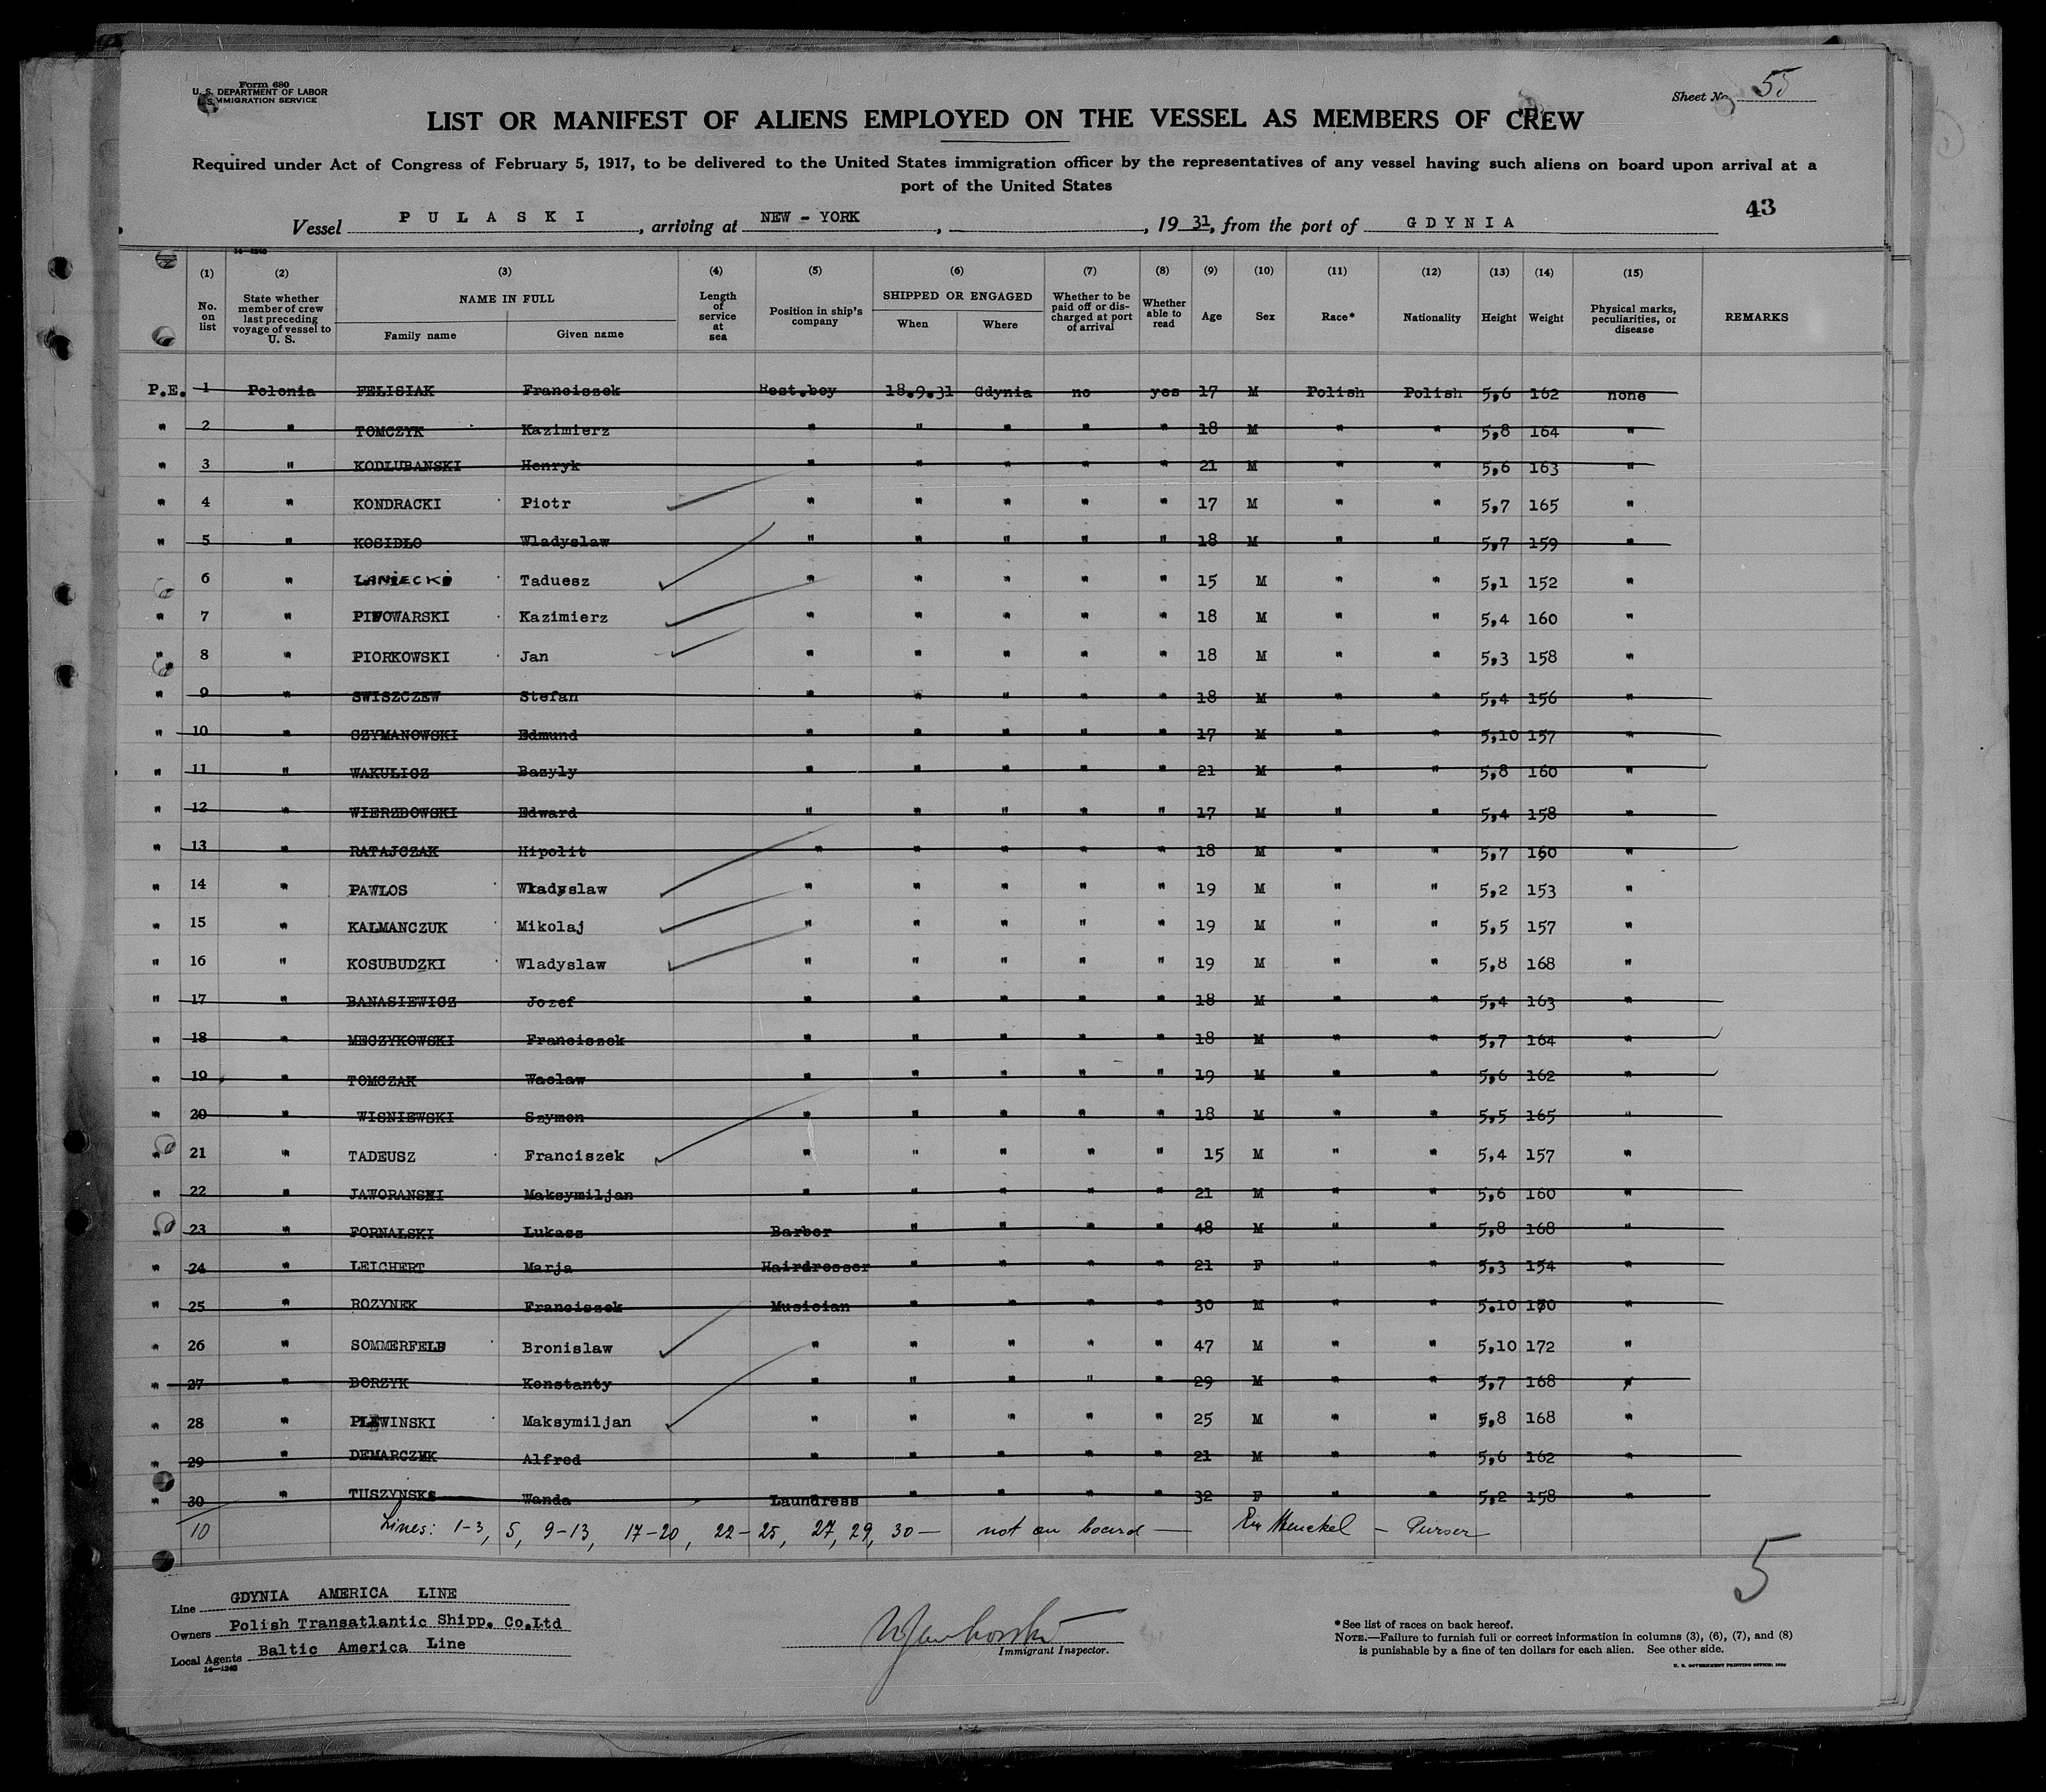 Form 680
U. S. DEPARTMENT OF LABOR
U. S. IMMIGRATION SERVICE
Sheet No. 55
LIST OR MANIFEST OF ALIENS EMPLOYED ON THE VESSEL AS MEMBERS OF CREW
Required under Act of Congress of February 5, 1917, to be delivered to the United States immigration officer by the representatives of any vessel having such aliens on board upon arrival at a
port of the United States
43
Vessel PULASKI, arriving at NEW - YORK, , 19 31, from the port of GDYNIA
14-1240
(1) (2) (3) (4) (5) (6) (7) (8) (9) (10) (11) (12) (13) (14) (15)
No. on list State whether member of crew last preceding voyage of vessel to U. S. NAME IN FULL Family name Given name Length of service at sea Position in ship's company SHIPPED OR ENGAGED When Where Whether to be paid off or discharged at port of arrival Whether able to read Age Sex Race* Nationality Height Weight Physical marks, peculiarities, or disease REMARKS
P.E. 1 Polonia FELISIAK Franciszek Rest.boy 18.9.31 Gdynia no yes 17 M Polish Polish 5,6 162 none
" 2 " TOMCZYK Kazimierz " " " " " 18 M " " 5,8 164 "
" 3 " KODLUBANSKI Henryk " " " " " 21 M " " 5,6 163 "
" 4 " KONDRACKI Piotr " " " " " 17 M " " 5,7 165 "
" 5 " KOSIDLO Wladyslaw " " " " " 18 M " " 5,7 159 "
" 6 " LANIECKI Taduesz " " " " " 15 M " " 5,1 152 "
" 7 " PIWOWARSKI Kazimierz " " " " " 18 M " " 5,4 160 "
" 8 " PIORKOWSKI Jan " " " " " 18 M " " 5,3 158 "
" 9 " SWISZCZEW Stefan " " " " " 18 M " " 5,4 156 "
" 10 " SZYMANOWSKI Edmund " " " " " 17 M " " 5,10 157 "
" 11 " WAKULICZ Bazyly " " " " " 21 M " " 5,8 160 "
" 12 " WIERZBOWSKI Edward " " " " " 17 M " " 5,4 158 "
" 13 " RATAJCZAK Hipolit " " " " " 18 M " " 5,7 160 "
" 14 " PAWLOS Wladyslaw " " " " " 19 M " " 5,2 153 "
" 15 " KALMANCZUK Mikolaj " " " " " 19 M " " 5,5 157 "
" 16 " KOSUBUDZKI Wladyslaw " " " " " 19 M " " 5,8 168 "
" 17 " BANASIEWICZ Jozef " " " " " 18 M " " 5,4 163 "
" 18 " MECZYKOWSKI Franciszek " " " " " 18 M " " 5,7 164 "
" 19 " TOMCZAK Waclaw " " " " " 19 M " " 5,6 162 "
" 20 " WISNIEWSKI Szymon " " " " " 18 M " " 5,5 165 "
" 21 " TADEUSZ Franciszek " " " " " 15 M " " 5,4 157 "
" 22 " JAWORANSKI Maksymiljan " " " " " 21 M " " 5,6 160 "
" 23 " FORNALSKI Lukasz Barber " " " " 48 M " " 5,8 168 "
" 24 " LEICHERT Marja Hairdresser " " " " 21 F " " 5,3 154 "
" 25 " ROZYNEK Franciszek Musician " " " " 30 M " " 5.10 170 "
" 26 " SOMMERFELD Bronislaw " " " " " 47 M " " 5,10 172 "
" 27 " BORZYK Konstanty " " " " " 29 M " " 5,7 168 "
" 28 " PLEWINSKI Maksymiljan " " " " " 25 M " " 5,8 168 "
" 29 " DEMARCZYK Alfred " " " " " 21 M " " 5,6 162 "
" 30 " TUSZYNSKA Wanda Laundress " " " " 32 F " " 5,2 158 "
10 Lines: 1-3, 5, 9-13, 17-20, 22-25, 27, 29, 30 - not on board - Henckel - Purser
5
Line GDYNIA AMERICA LINE
Owners Polish Transatlantic Shipp. Co.Ltd
Local Agents Baltic America Line
14-1240
Immigrant Inspector.
*See list of races on back hereof.
NOTE.—Failure to furnish full or correct information in columns (3), (6), (7), and (8)
is punishable by a fine of ten dollars for each alien. See other side.
U. S. GOVERNMENT PRINTING OFFICE: